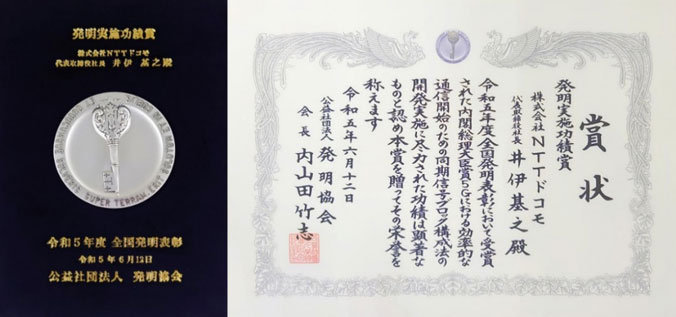 発明実施功績賞
株式会社NTTドコモ
代表取締役社長 井伊 基之殿
令和5年度 全国発明表彰
令和5年6月12日
公益社団法人 発明協会
賞状
発明実施功績賞
株式会社NTTドコモ
代表取締役社長 井伊基之殿
令和五年度全国発明表彰において受賞
された内閣総理大臣賞5Gにおける効率的な
通信開始のための同期信号ブロック構成法の
開発実施に尽力された功績は顕著な
ものと認め本賞を贈ってその栄誉を
称えます
令和五年六月十二日
公益社団法人 発明協会
会長 内山田竹志